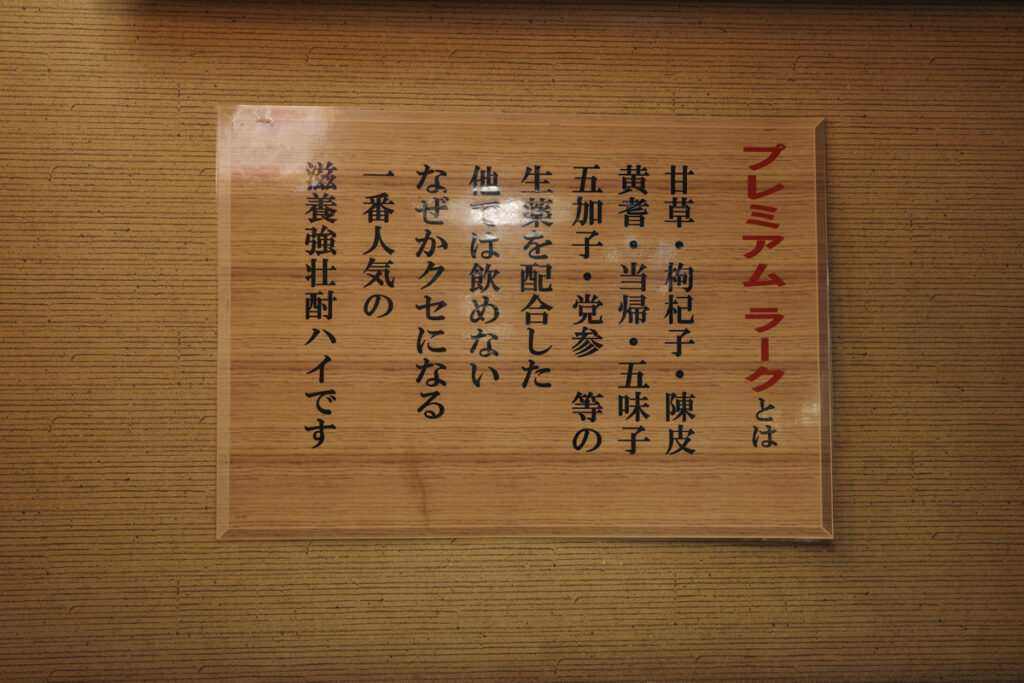 プレミアム ラークとは
甘草・枸杞子・陳皮
黄耆・当帰・五味子
五加子・党参 等の
生薬を配合した
他では飲めない
なぜかクセになる
一番人気の
滋養強壮酎ハイです